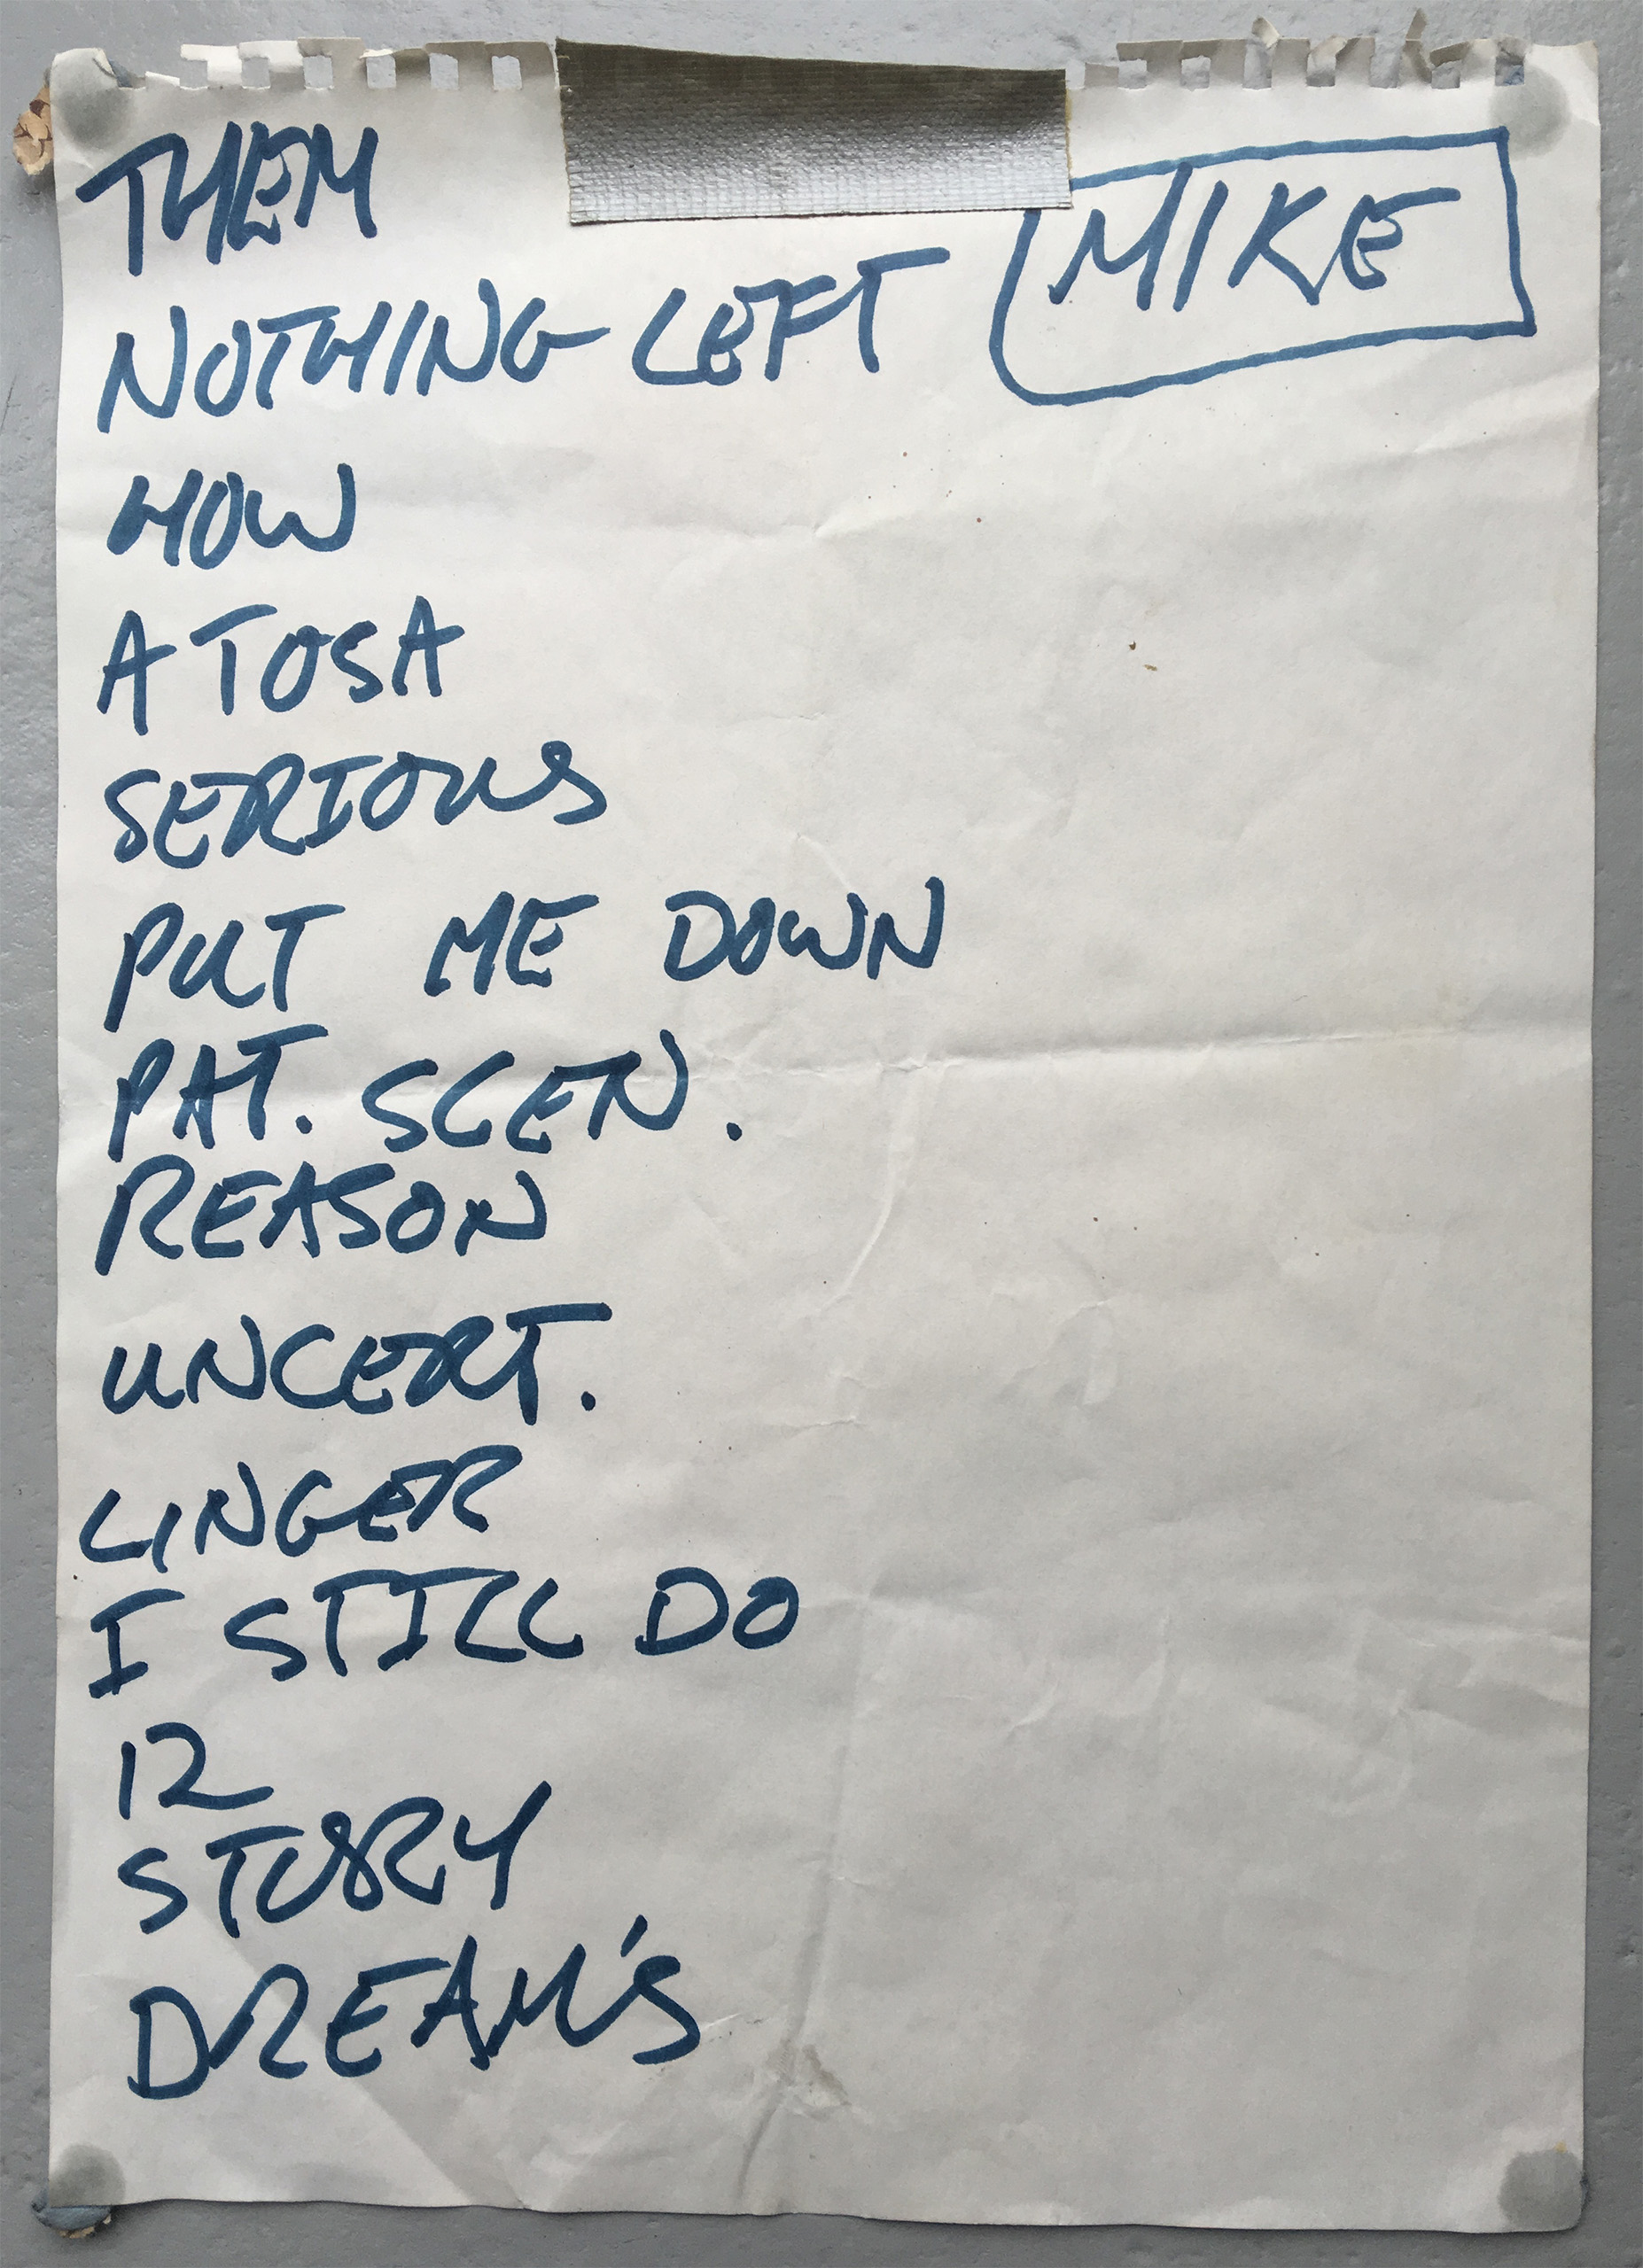 THEM
MIKE
NOTHING LEFT
HOW
ATOSA
SERIOUS
PUT ME DOWN
PAT. SCEN.
REASON
UNCERT.
LINGER
I STILL DO
12
STORY
DREAM'S